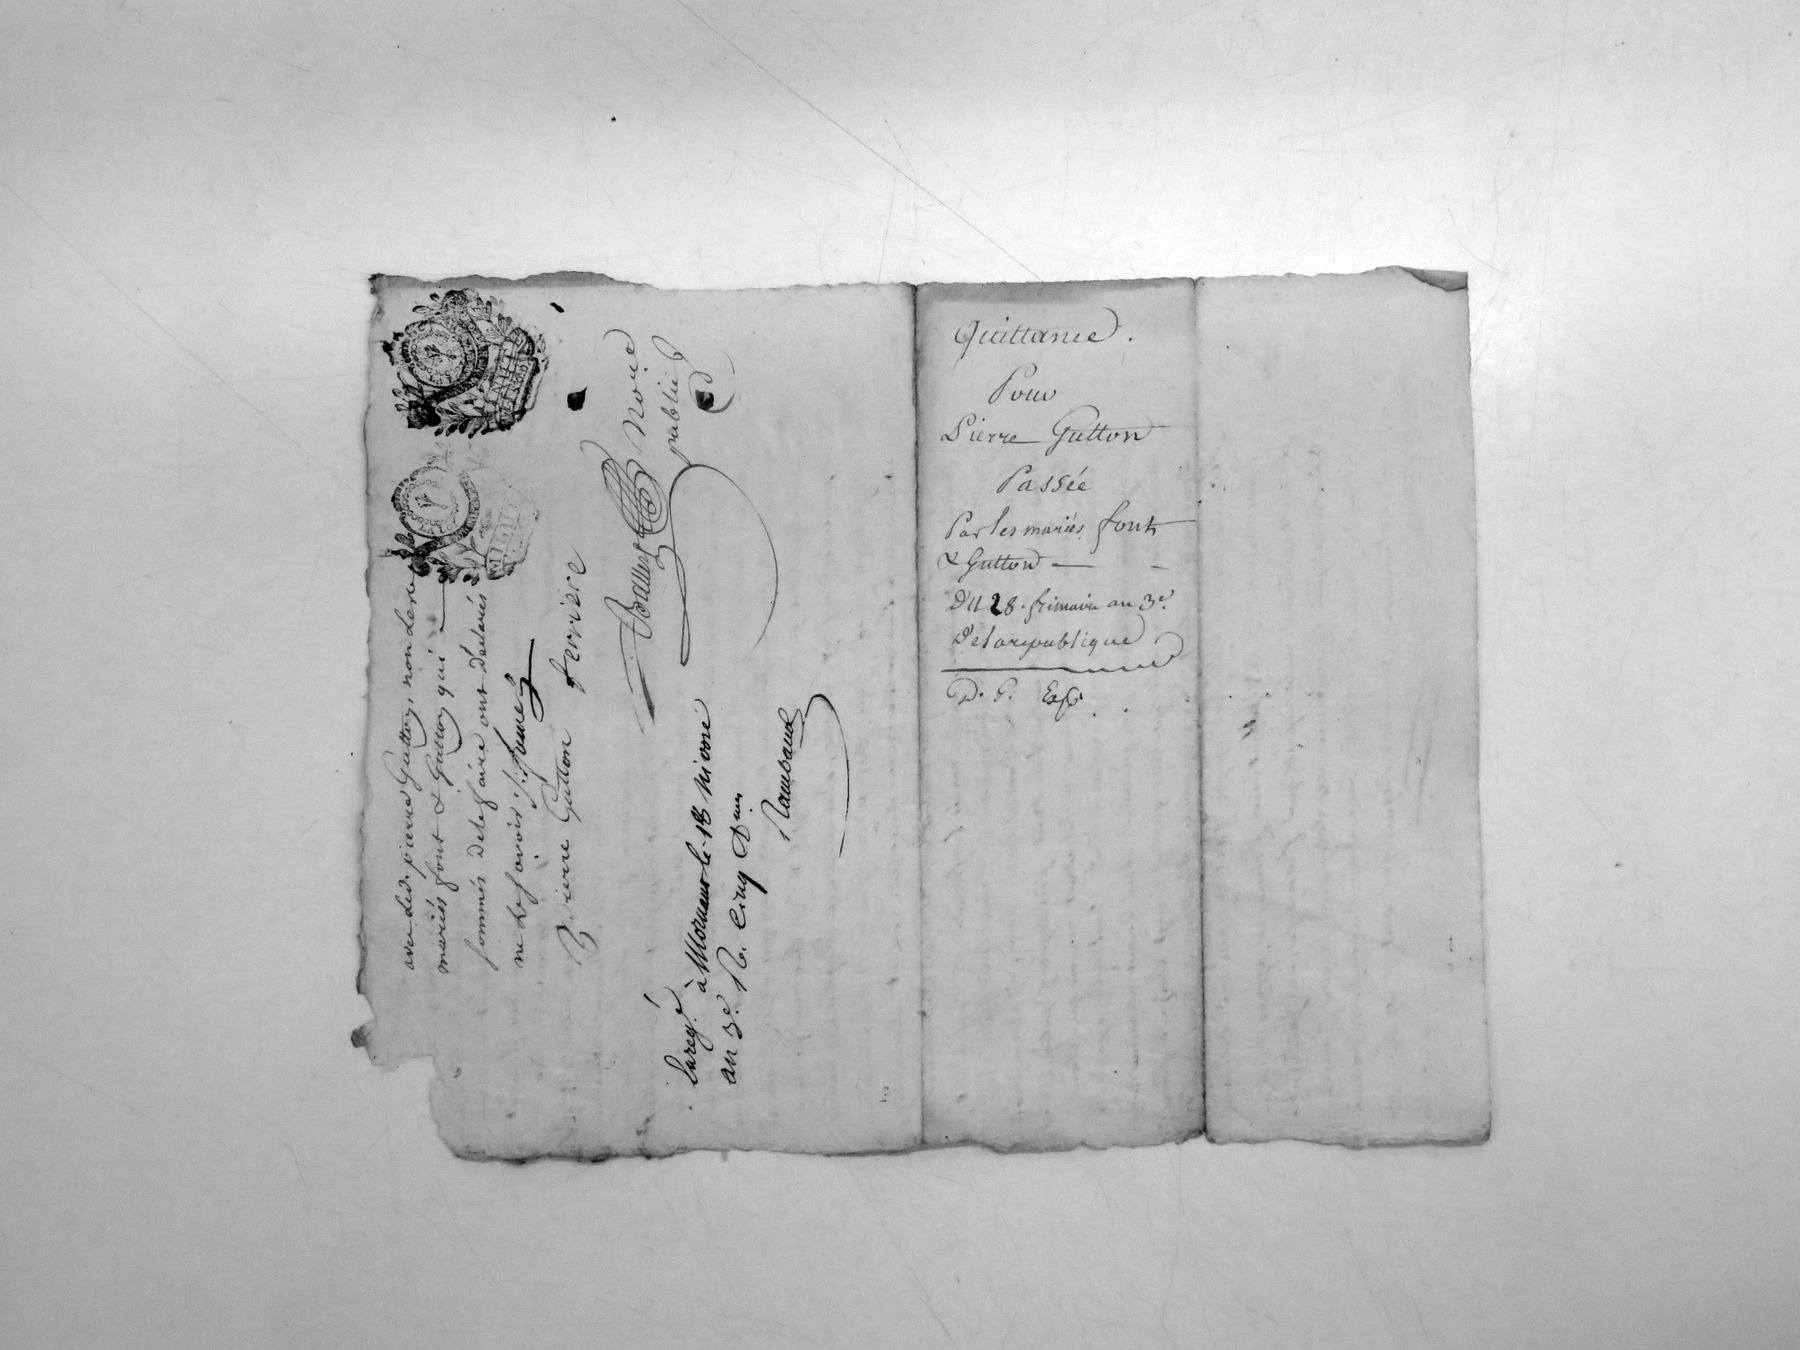 avec led. pierre Gutton, non lesd
mariés font & Gutton qui
sommés de le faire ont déclarés
ne le savoir
Pierre Gutton ferriere
Noire
public
Enregé à Mornant le 18 nivose
an 3e. R. Cinq
Rambaud
Quittance.
Pour
Pierre Gutton
Passée
Par les mariés font
& Gutton
Du 28. frimaire an 3e.
De la republique
D. G. Exp.